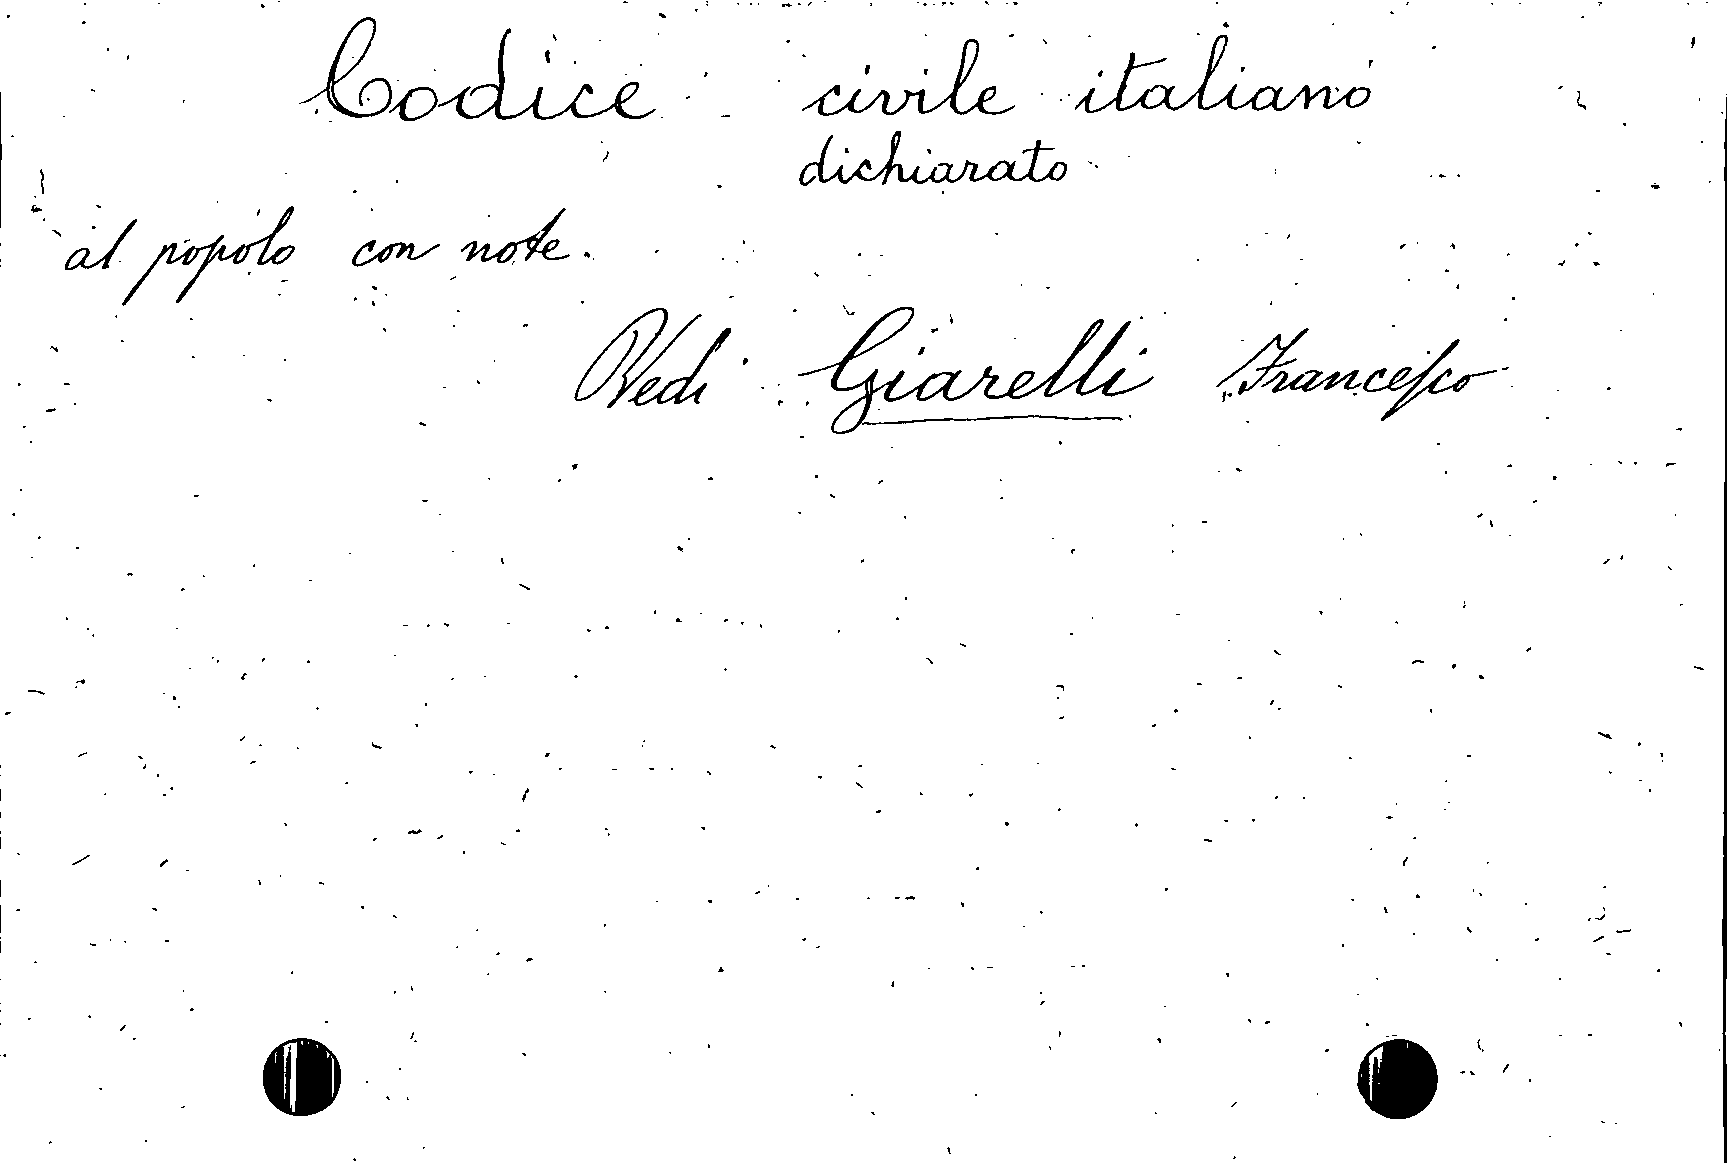 Codice civile italiano
dichiarato
al popolo con note.
Vedi Giarelli Francesco